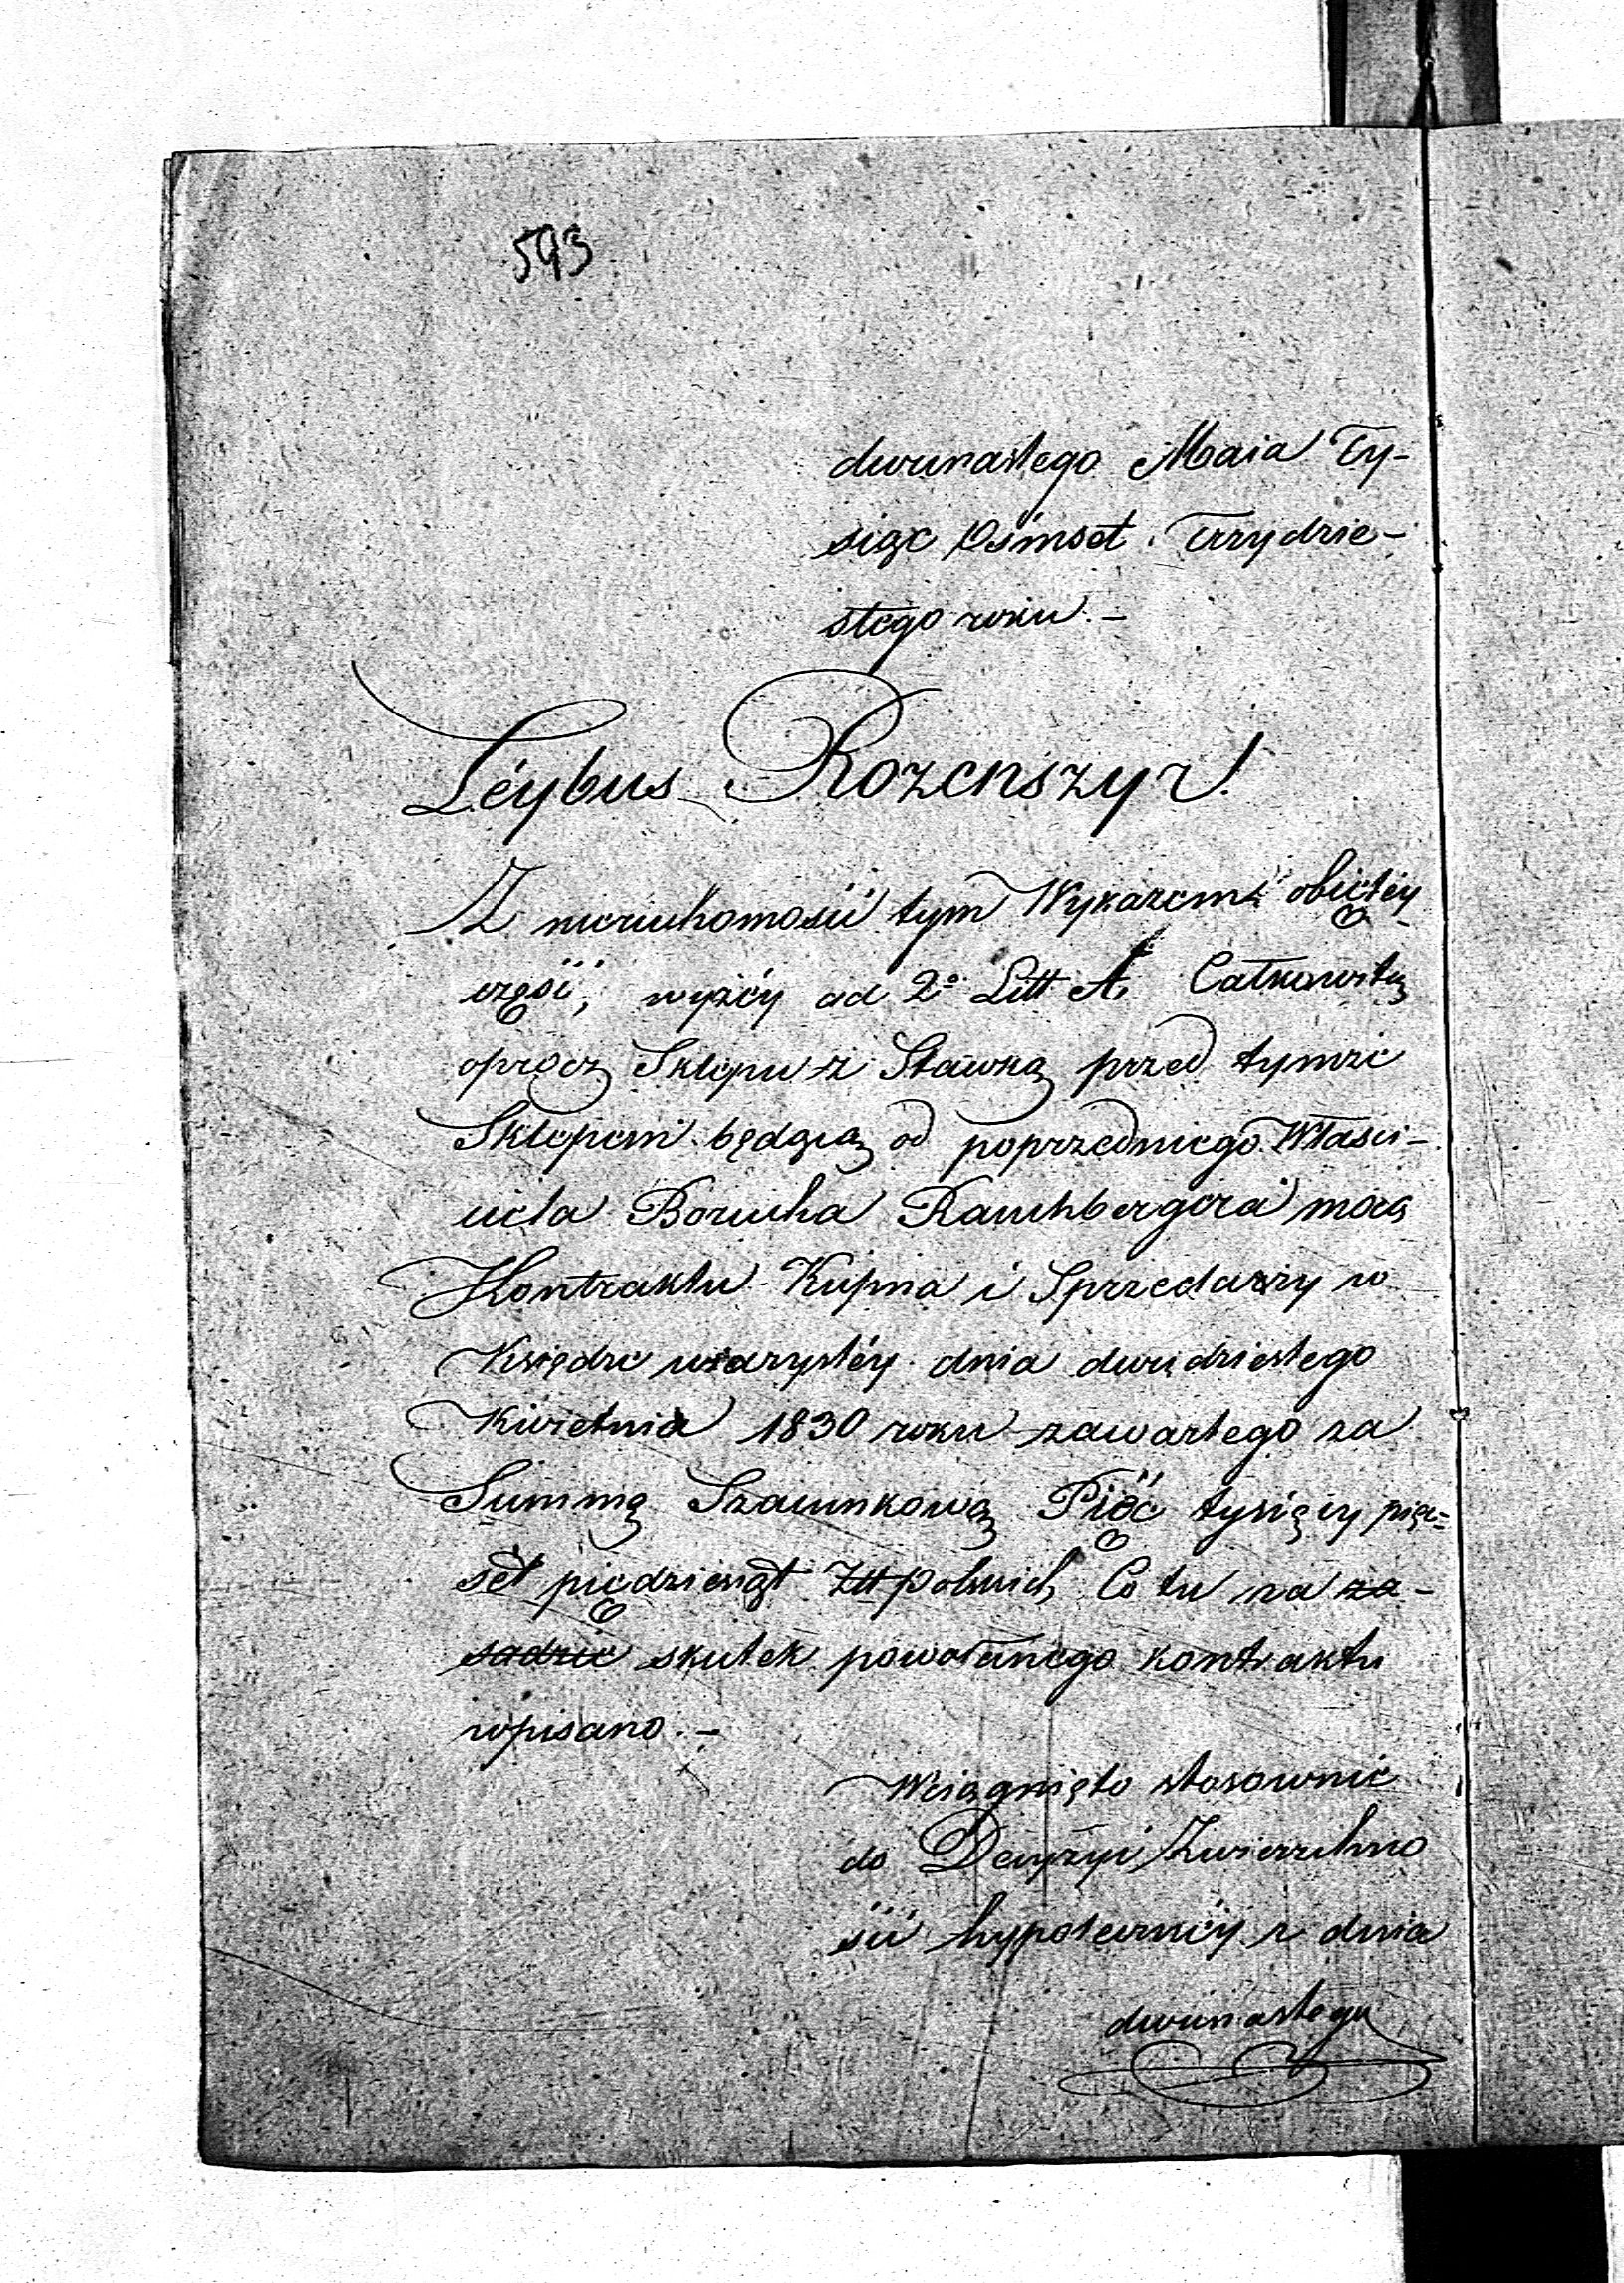 593
dwunastego Maia Ty-
siąc Ośmset Trzydzie-
stego roku.-
Leybus Rozenszyr.
Z nieruchomości tym Wykazem obiętéy
część, wyżéy ad 2° Litt A, Całkowitą
oprocz Sklepu z Stawką przed tymże
Sklepem będącą od poprzedniego Właści-
ciela Borucha Rauchbergera mocą
Kontraktu Kupna i Sprzedaży w
Księdze wieczystéy dnia dwudziestego
Kwietnia 1830 roku zawartego za
Summę Szacunkową Pięć tysięcy pięć=
set piędziesiąt Złł polskich Co tu na za-
sadzie skutek powołanego kontraktu
wpisano.-
Wciągnięto stosownie
do Decyzyi Zwierzchno
ści hypoteczney z dnia
dwunastego